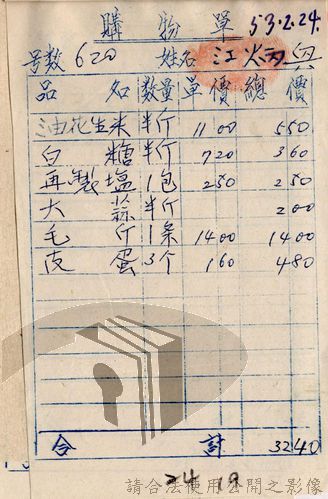 購物單 53.2.24.
号数 620 姓名 江炳興
品名 数量 單價 總價
油花生米 半斤 11 00 5 50
白糖 半斤 7 20 3 60
再製塩 1包 2 50 2 50
大蒜 半斤 2 00
毛巾 1条 14 00 14 00
皮蛋 3个 1 60 4 80
合計 32 40
24 19
請合法使用公開之影像